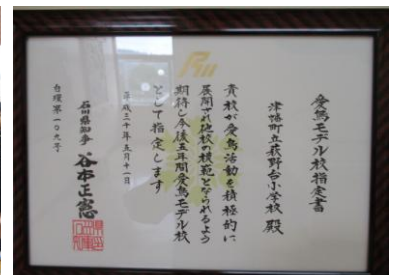 愛鳥モデル校指定書
津幡町立萩野台小学校 殿
貴校が愛鳥活動を積極的に
展開され他校の模範となられるよう
期待し今後五年間愛鳥モデル校
として指定します
平成三十年五月十一日
石川県知事 谷本正憲
自環第一〇九号